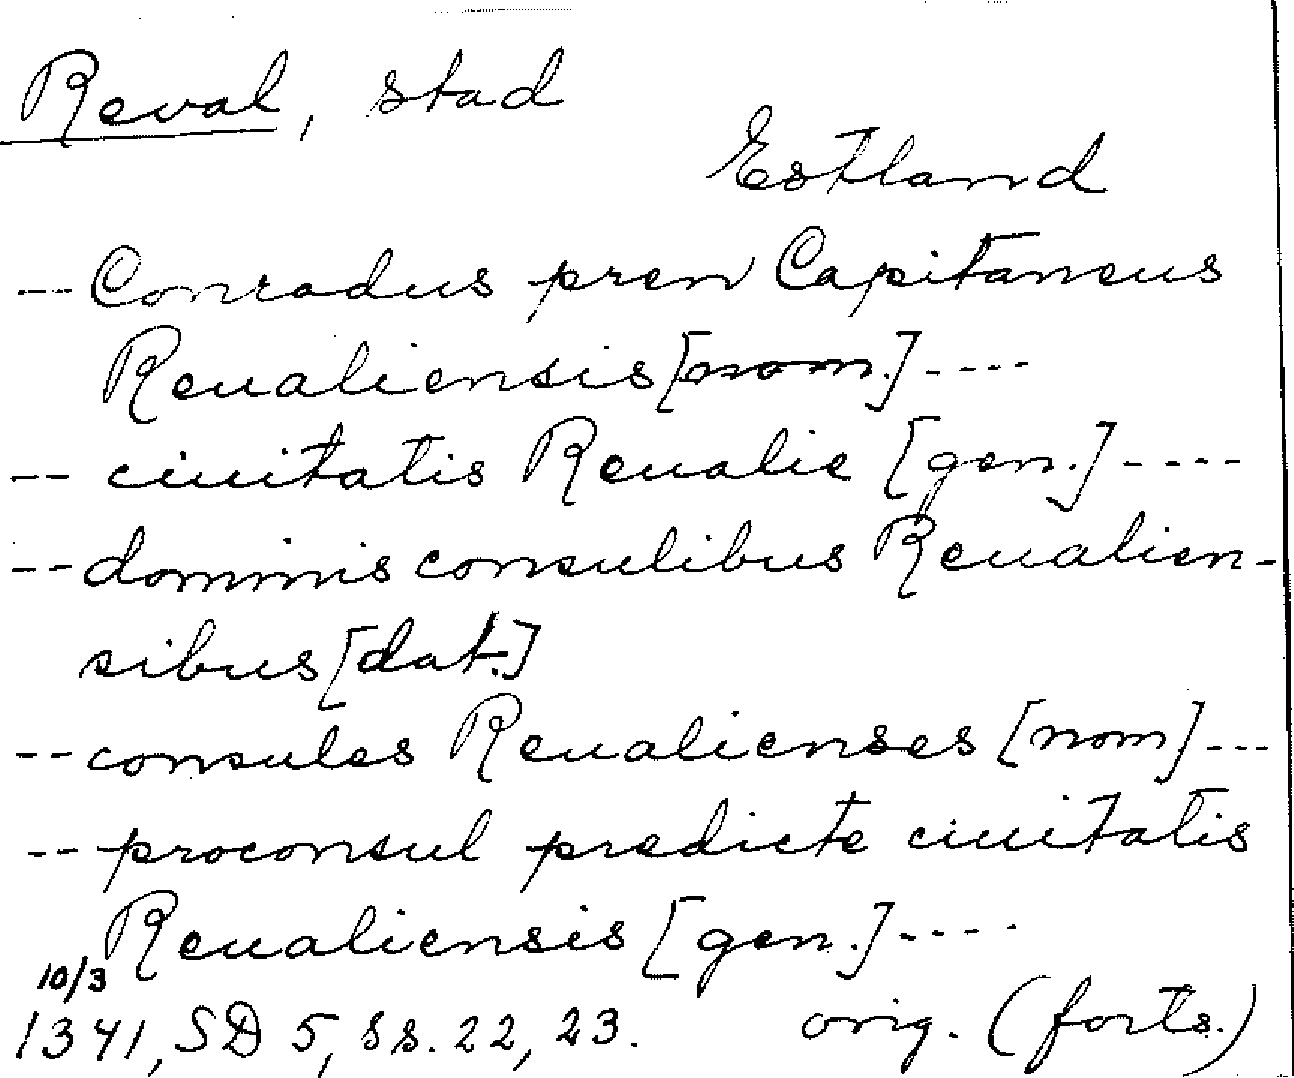 Reval, stad
Estland
-- Conradus pren Capitaneus
Reualiensis [nom.] ----
-- ciuitatis Reualie [gen.] ----
-- dominis consulibus Reualien-
sibus [dat.]
-- consules Reualienses [nom] ---
-- proconsul predicte ciuitatis
Reualiensis [gen.] ----
10/3
1341, SD 5, ss. 22, 23. orig. (forts.)